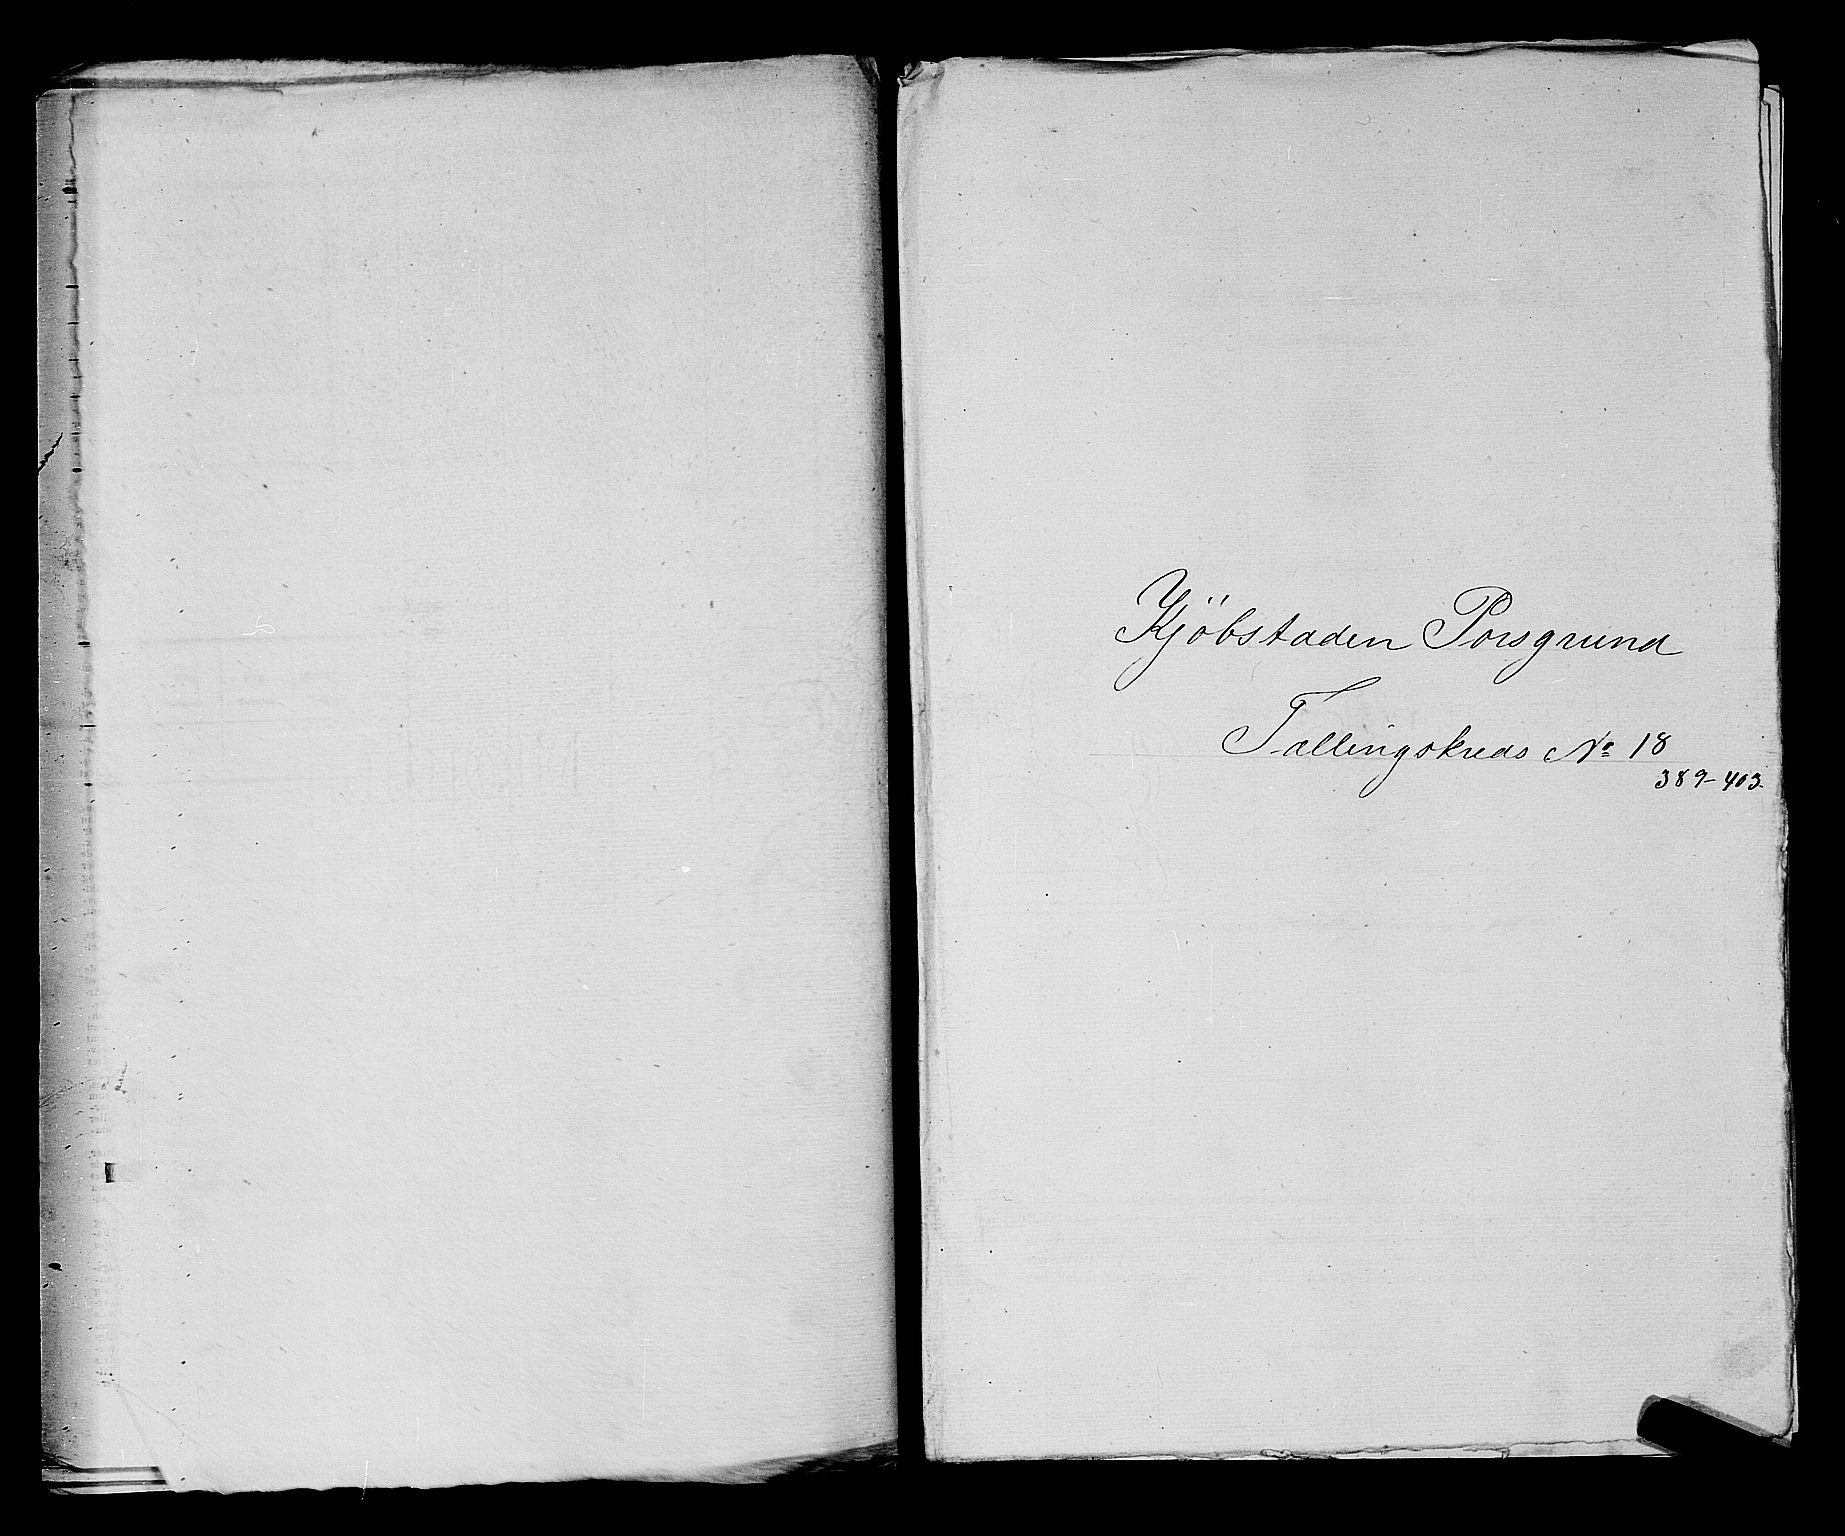 Kjöbstaden Porsgrund
Tællingskreds No 18
389-403.